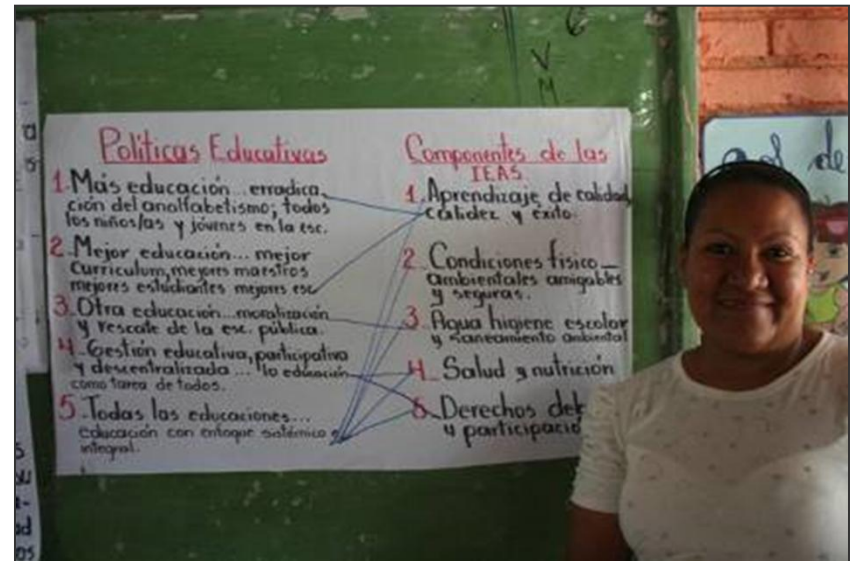 V 6
M
Políticas Educativas
1. Más educación... erradica_
ción del analfabetismo; todos
los niños/as y jóvenes en la esc.
2. Mejor educación... mejor
Curriculum, mejores maestros
mejores estudiantes mejores esc
3. Otra educación... moralización
y rescate de la esc. pública.
4. Gestión educativa, participativa
y descentralizada... la educación
como tarea de todos.
5. Todas las educaciones...
educación con enfoque sistémico e
integral.
Componentes de las
IEAS.
1. Aprendizaje de calidad,
calidez y éxito.
2. Condiciones físico_
ambientales amigables
y seguras.
3. Agua higiene escolar
y saneamiento ambiental
4. Salud y nutrición
5. Derechos deb
y participacio
de